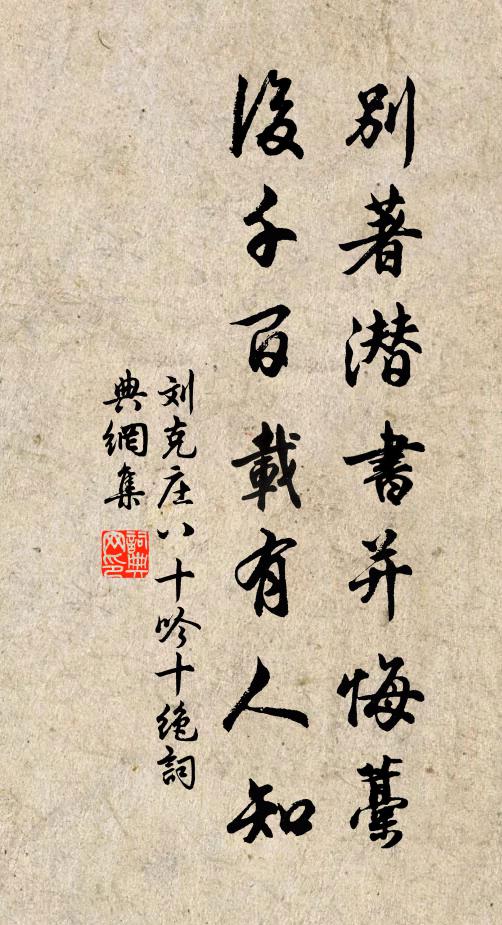 别著潜书并悔藁
后千百载有人知
刘克庄八十吟十绝词
典網集
詞典
网印